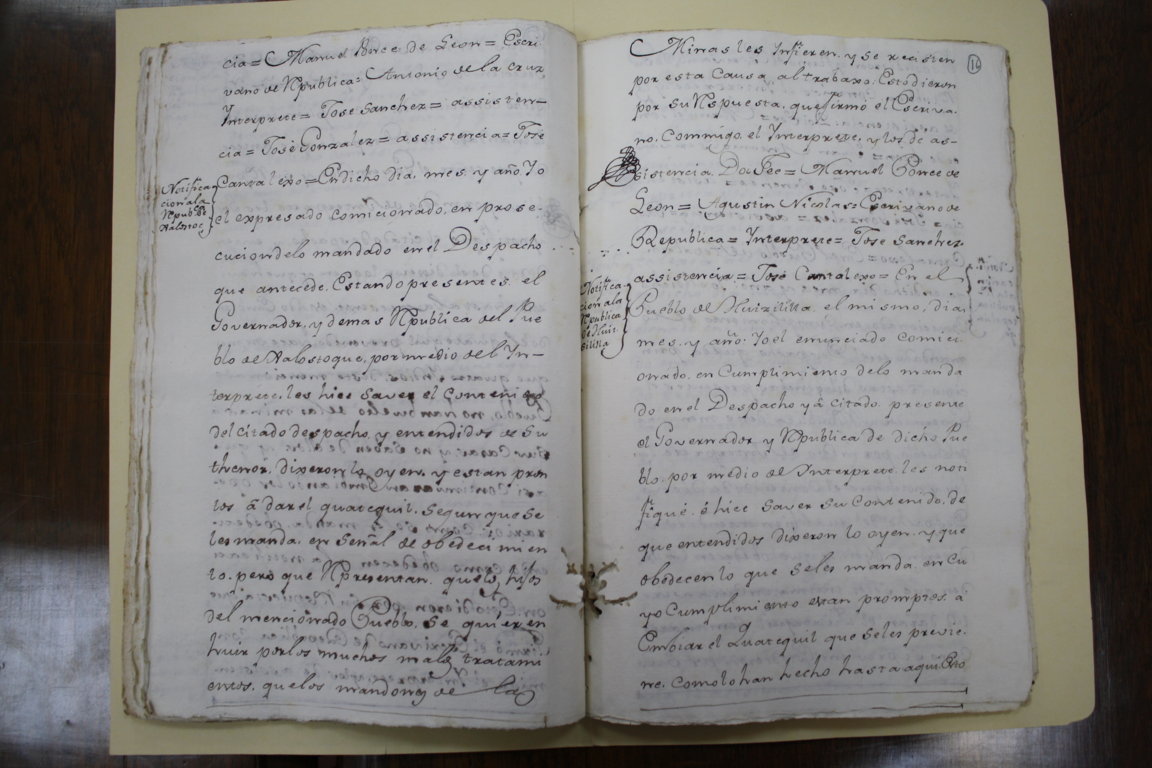 cia= Manuel Ponce de Leon= Escri
vano de Republica= Antonio de la Cruz
Y
Ynterprete= Jose Sanchez= assisten-
cia= Jose Gonzalez= assistencia= Jose
Notifica
cion ala
Republica de
Cantalexo= En dicho dia, mes, y año. Yo
el expresado comicionado, en prose-
cucion delo mandado en el Despacho
que antecede, Estando presentes, el
Governador, y demas Republica del Pue
blo de Xalostoque, por medio del Yn-
terprete, les hice saver el Contenido
del citado despacho, y entendidos de su
thenor, dixeron lo oyen, y estan pron
tos â dar el quatequil, segun que se
les manda, en señal de obedecimien
to. pero que Representan, que los hijos
del mencionado Pueblo, se quieren
huir por los muchos malos tratami
entos, que los mandones de las
16
Minas les Ynfieren, y se recisten
por esta Causa, al trabaxo. Esto dieron
por su Respuesta, que firmó el Escriva-
no, Commigo, el Ynterprete, y los de as-
sistencia. Doi Fee= Manuel Ponce de
Leon= Agustin Nicolas= Escrivano de
Republica= Ynterprete= Jose Sanchez
Notifica
cion ala
Republica
de Huit
silila
assistencia= Jose Cantalexo= En el
Pueblo de Huitzililla, el mismo, dia
mes, y año: Yo el enunciado comici
onado, en Cumplimiento delo manda
do en el Despacho yâ citado, presente
el Governador, y Republica de dicho Pue
blo, por medio de Ynterprete, les noti
fiqué, é hice saver su Contenido, de
que entendidos dixeron lo oyen, y que
obedecen lo que seles manda, en Cu
yo Cumplimiento estan promptos, â
Embiar el Quatequil que seles previe-
ne, como lo han hecho hasta aqui. Esto